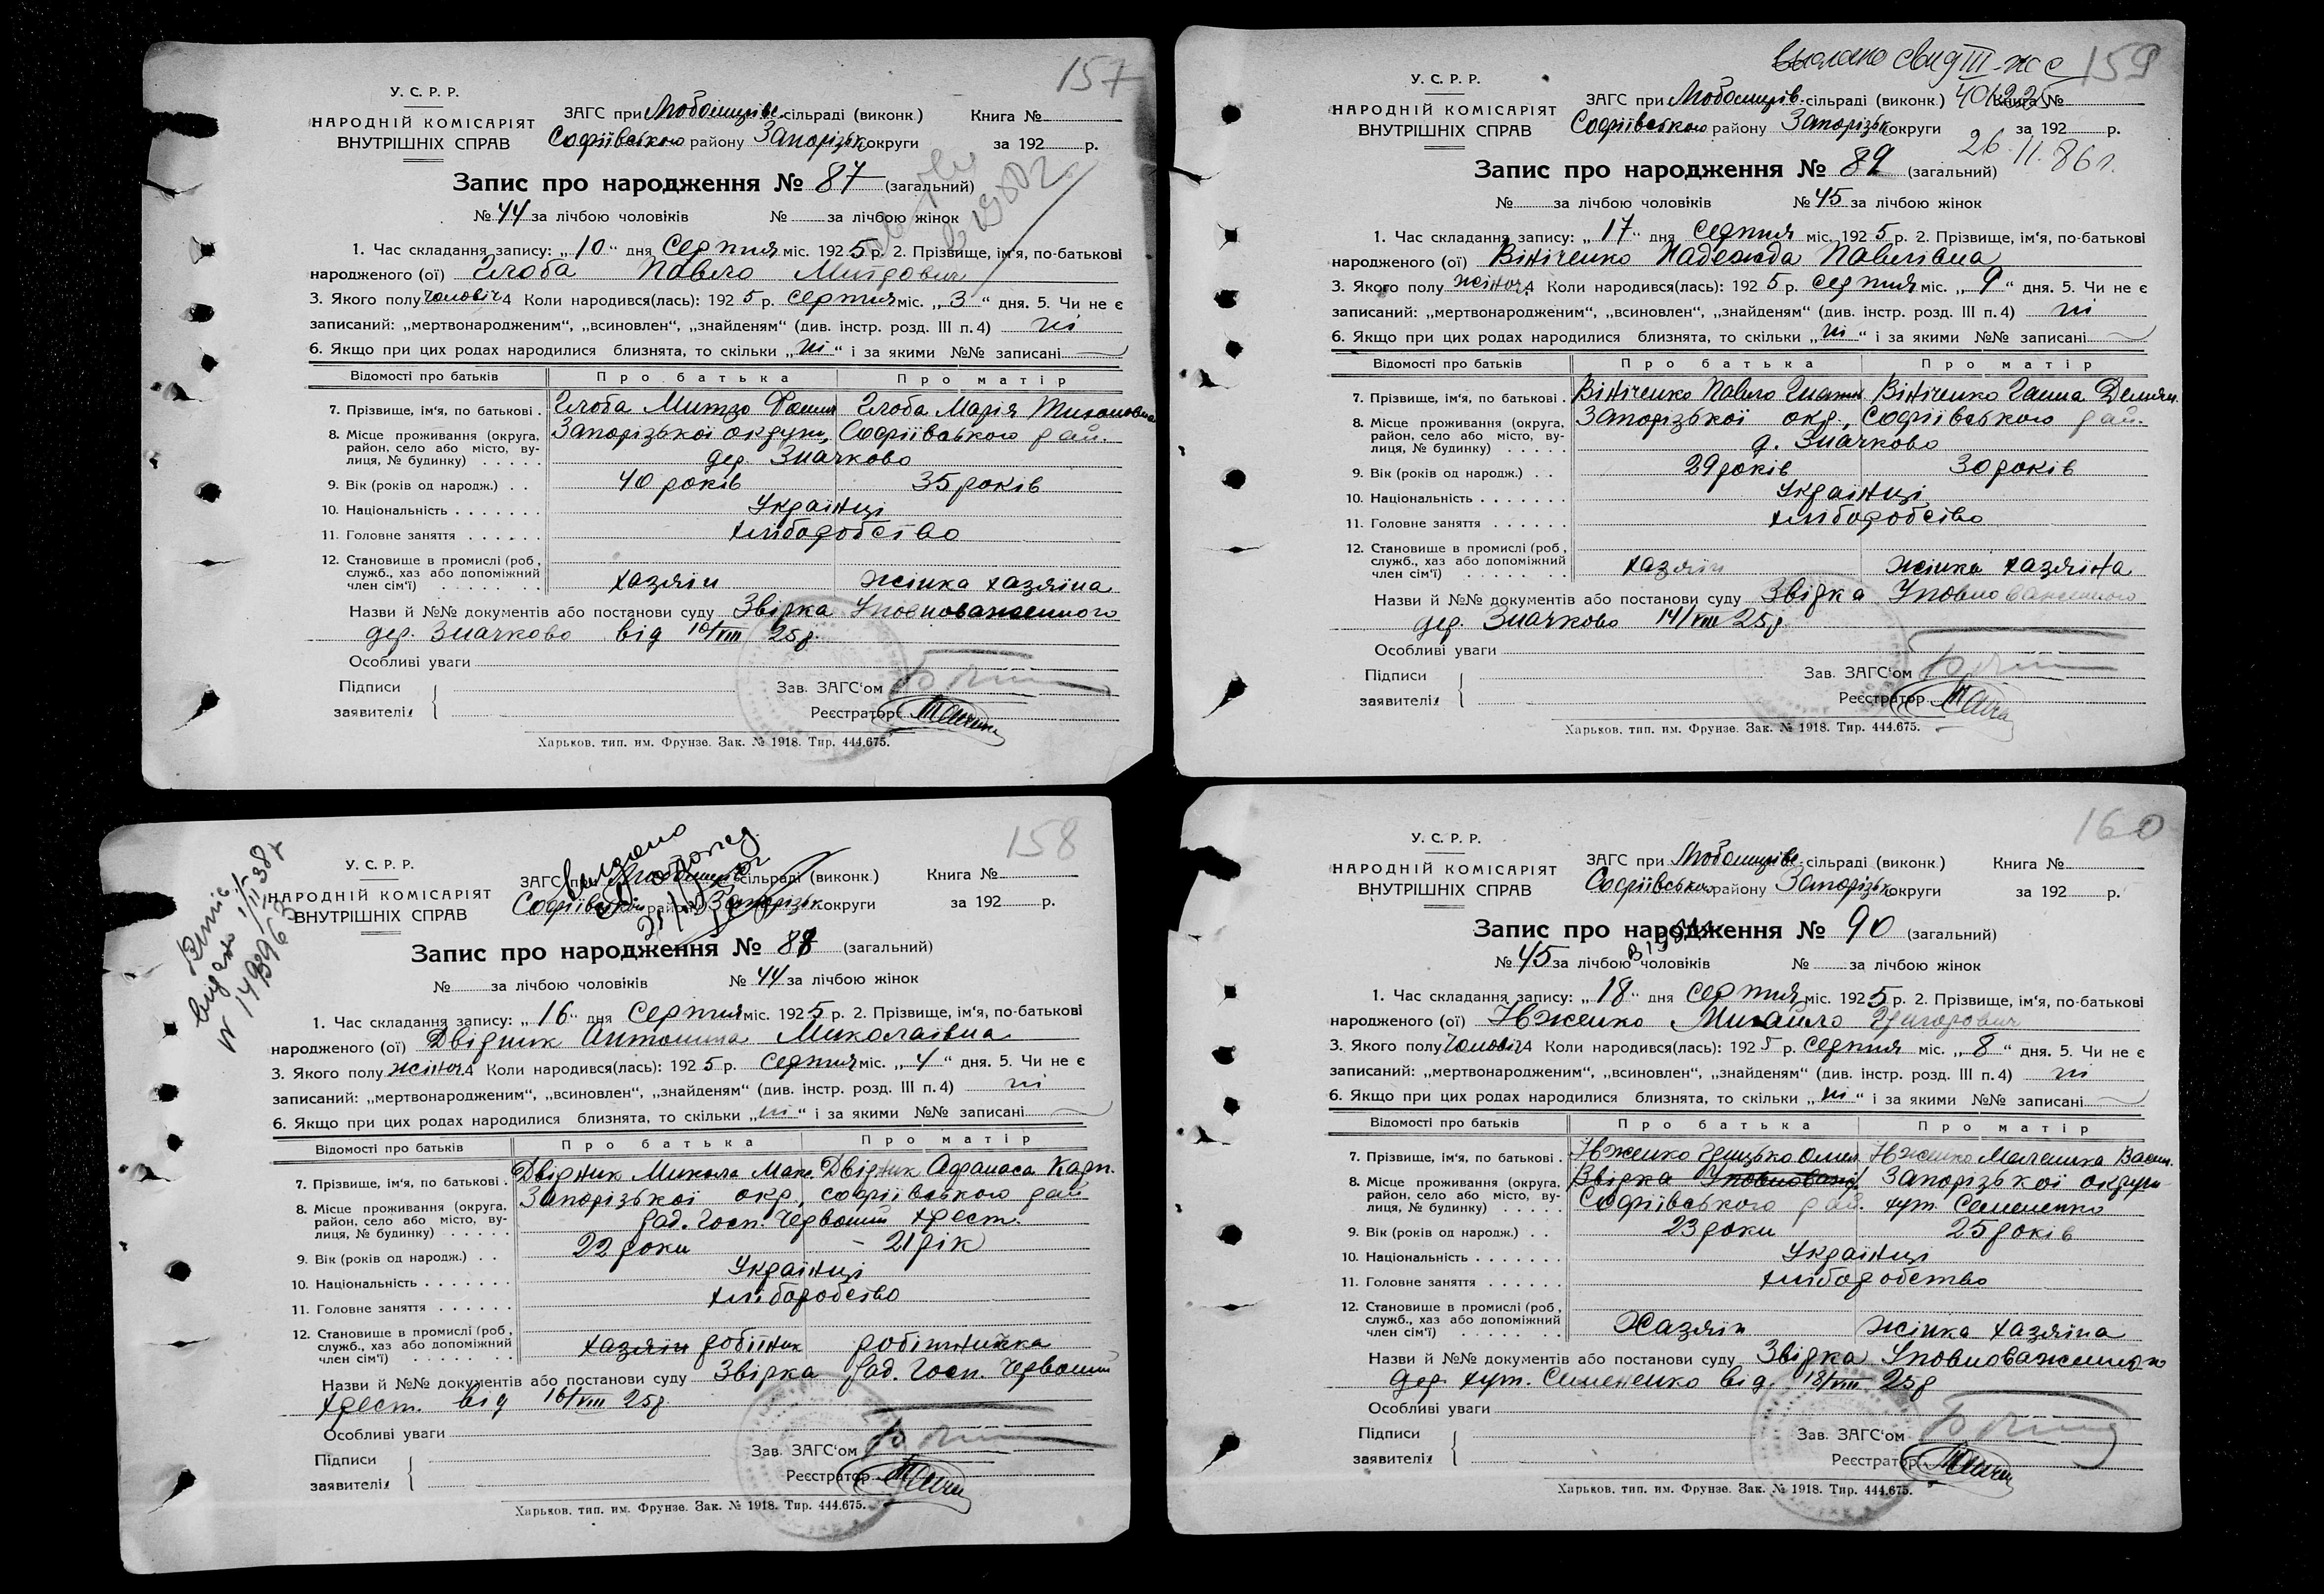 157
У. С. Р. Р.
НАРОДНІЙ КОМІСАРІЯТ
ВНУТРІШНІХ СПРАВ
ЗАГС при Любомирівс. сільраді (виконк.) Книга №
Софіївського району Запорізьк округи за 192 р.
Запис про народження № 87 (загальний)
№ 44 за лічбою чоловіків № за лічбою жінок
1. Час складання запису: „10“ дня Серпня міс. 1925 р. 2. Прізвище, ім‘я, по-батькові
народженого (ої) Глоба Павло Митрович
3. Якого полу чоловіч 4 Коли народився(лась): 1925 р. серпня міс. „3“ дня. 5. Чи не є
записаний: „мертвонародженим“, „всиновлен“, „знайденям“ (див. інстр. розд. III п. 4) ні
6. Якщо при цих родах народилися близнята, то скільки „ні“ і за якими №№ записані
Відомості про батьків Про батька Про матір
7. Прізвище, ім‘я, по батькові . Глоба Митро Глоба Марія Тихоновна
8. Місце проживання (округа, Запорізької округи, Софіївського рай.
район, село або місто, ву-
лиця, № будинку) . . . . . дер. Значково
9. Вік (років од народж.) . . 40 років 35 років
10. Національність . . . . . . . Українці
11. Головне заняття . . . . . . хліборобство
12. Становище в промислі (роб,
служб., хаз або допоміжний
член сім‘ї) . . . . . . . . хазяін жінка хазяіна
Назви й №№ документів або постанови суду Звірка Уповноваженного
дер. Значково від 10/VIII 25р.
Особливі уваги
Підписи
заявителів
Зав. ЗАГС‘ом
Реєстратор
Харьков. тип. им. Фрунзе. Зак. № 1918. Тир. 444.675.
159
свид III-ЖС
401225
26.11.86г.
У. С. Р. Р.
НАРОДНІЙ КОМІСАРІЯТ
ВНУТРІШНІХ СПРАВ
ЗАГС при Любомирів. сільраді (виконк.) Книга №
Софіївського району Запорізьк округи за 192 р.
Запис про народження № 89 (загальний)
№ за лічбою чоловіків № 45 за лічбою жінок
1. Час складання запису: „17“ дня Серпня міс. 1925 р. 2. Прізвище, ім‘я, по-батькові
народженого (ої) Вініченко Надежда Павлівна
3. Якого полу жіноч. 4 Коли народився(лась): 1925 р. серпня міс. „9“ дня. 5. Чи не є
записаний: „мертвонародженим“, „всиновлен“, „знайденям“ (див. інстр. розд. III п. 4) ні
6. Якщо при цих родах народилися близнята, то скільки „ні“ і за якими №№ записані
Відомості про батьків Про батька Про матір
7. Прізвище, ім‘я, по батькові . Вініченко Павло Вініченко Ганна Демян.
8. Місце проживання (округа, Запорізької окр., Софіївського рай.
район, село або місто, ву-
лиця, № будинку) . . . . . д. Значково
9. Вік (років од народж.) . . 29 років 30 років
10. Національність . . . . . . . Українці
11. Головне заняття . . . . . . хліборобство
12. Становище в промислі (роб,
служб., хаз або допоміжний
член сім‘ї) . . . . . . . . хазяін жінка хазяіна
Назви й №№ документів або постанови суду Звірка Уповноваженного
дер. Значково 14/VIII 25р
Особливі уваги
Підписи
заявителів
Зав. ЗАГС‘ом
Реєстратор
Харьков. тип. им. Фрунзе. Зак. № 1918. Тир. 444.675.
158
У. С. Р. Р.
НАРОДНІЙ КОМІСАРІЯТ
ВНУТРІШНІХ СПРАВ
ЗАГС при Любомирів сільраді (виконк.) Книга №
Софіївськ району Запорізьк округи за 192 р.
Запис про народження № 88 (загальний)
№ за лічбою чоловіків № 44 за лічбою жінок
1. Час складання запису: „16“ дня Серпня міс. 1925 р. 2. Прізвище, ім‘я, по-батькові
народженого (ої) Двірник Антонина Миколаівна
3. Якого полу жіноч 4 Коли народився(лась): 1925 р. Серпня міс. „4“ дня. 5. Чи не є
записаний: „мертвонародженим“, „всиновлен“, „знайденям“ (див. інстр. розд. III п. 4) ні
6. Якщо при цих родах народилися близнята, то скільки „ні“ і за якими №№ записані
Відомості про батьків Про батька Про матір
7. Прізвище, ім‘я, по батькові . Двірник Микола Мак. Двірник Афанаса Карп.
8. Місце проживання (округа, Запорізької окр., софіівського рай
район, село або місто, ву-
лиця, № будинку) . . . . . . Рад. Госп. Червоний Хрест.
9. Вік (років од народж.) . . 22 роки – 21 рік
10. Національність . . . . . . . Українці
11. Головне заняття . . . . . . хліборобство
12. Становище в промислі (роб,
служб., хаз або допоміжний
член сім‘ї) . . . . . . . . хазяін робітник робітничка
Назви й №№ документів або постанови суду Звірка Рад. Госп. Червоний
Хрест. від 16/VIII 25р
Особливі уваги
Підписи
заявителів
Зав. ЗАГС‘ом
Реєстратор
Харьков. тип. им. Фрунзе. Зак. № 1918. Тир. 444.675.
160
У. С. Р. Р.
НАРОДНІЙ КОМІСАРІЯТ
ВНУТРІШНІХ СПРАВ
ЗАГС при Любомирівс. сільраді (виконк.) Книга №
Софіївського району Запорізьк округи за 192 р.
Запис про народження № 90 (загальний)
№ 45 за лічбою чоловіків № за лічбою жінок
1. Час складання запису: „18“ дня Серпня міс. 1925 р. 2. Прізвище, ім‘я, по-батькові
народженого (ої) Івженко Михайло Григорович
3. Якого полу Чоловіч 4 Коли народився(лась): 1925 р. Серпня міс. „8“ дня. 5. Чи не є
записаний: „мертвонародженим“, „всиновлен“, „знайденям“ (див. інстр. розд. III п. 4) ні
6. Якщо при цих родах народилися близнята, то скільки „ні“ і за якими №№ записані
Відомості про батьків Про батька Про матір
7. Прізвище, ім‘я, по батькові . Івженко Грицько Омел. Івженко Меленика Васил.
8. Місце проживання (округа, Звірка Уповноваж. Запорізької округи
район, село або місто, ву-
лиця, № будинку) . . . . . Софіївського рай. хут. Семененко
9. Вік (років од народж.) . . 23 роки 25 років
10. Національність . . . . . . . Українці
11. Головне заняття . . . . . . хліборобство
12. Становище в промислі (роб,
служб., хаз або допоміжний
член сім‘ї) . . . . . . . . Хазяін жінка хазяіна
Назви й №№ документів або постанови суду Звірка Уповноваженного
дер. хут. Семененко від. 18/VIII 25р
Особливі уваги
Підписи
заявителів
Зав. ЗАГС‘ом
Реєстратор
Харьков. тип. им. Фрунзе. Зак. № 1918. Тир. 444.675.